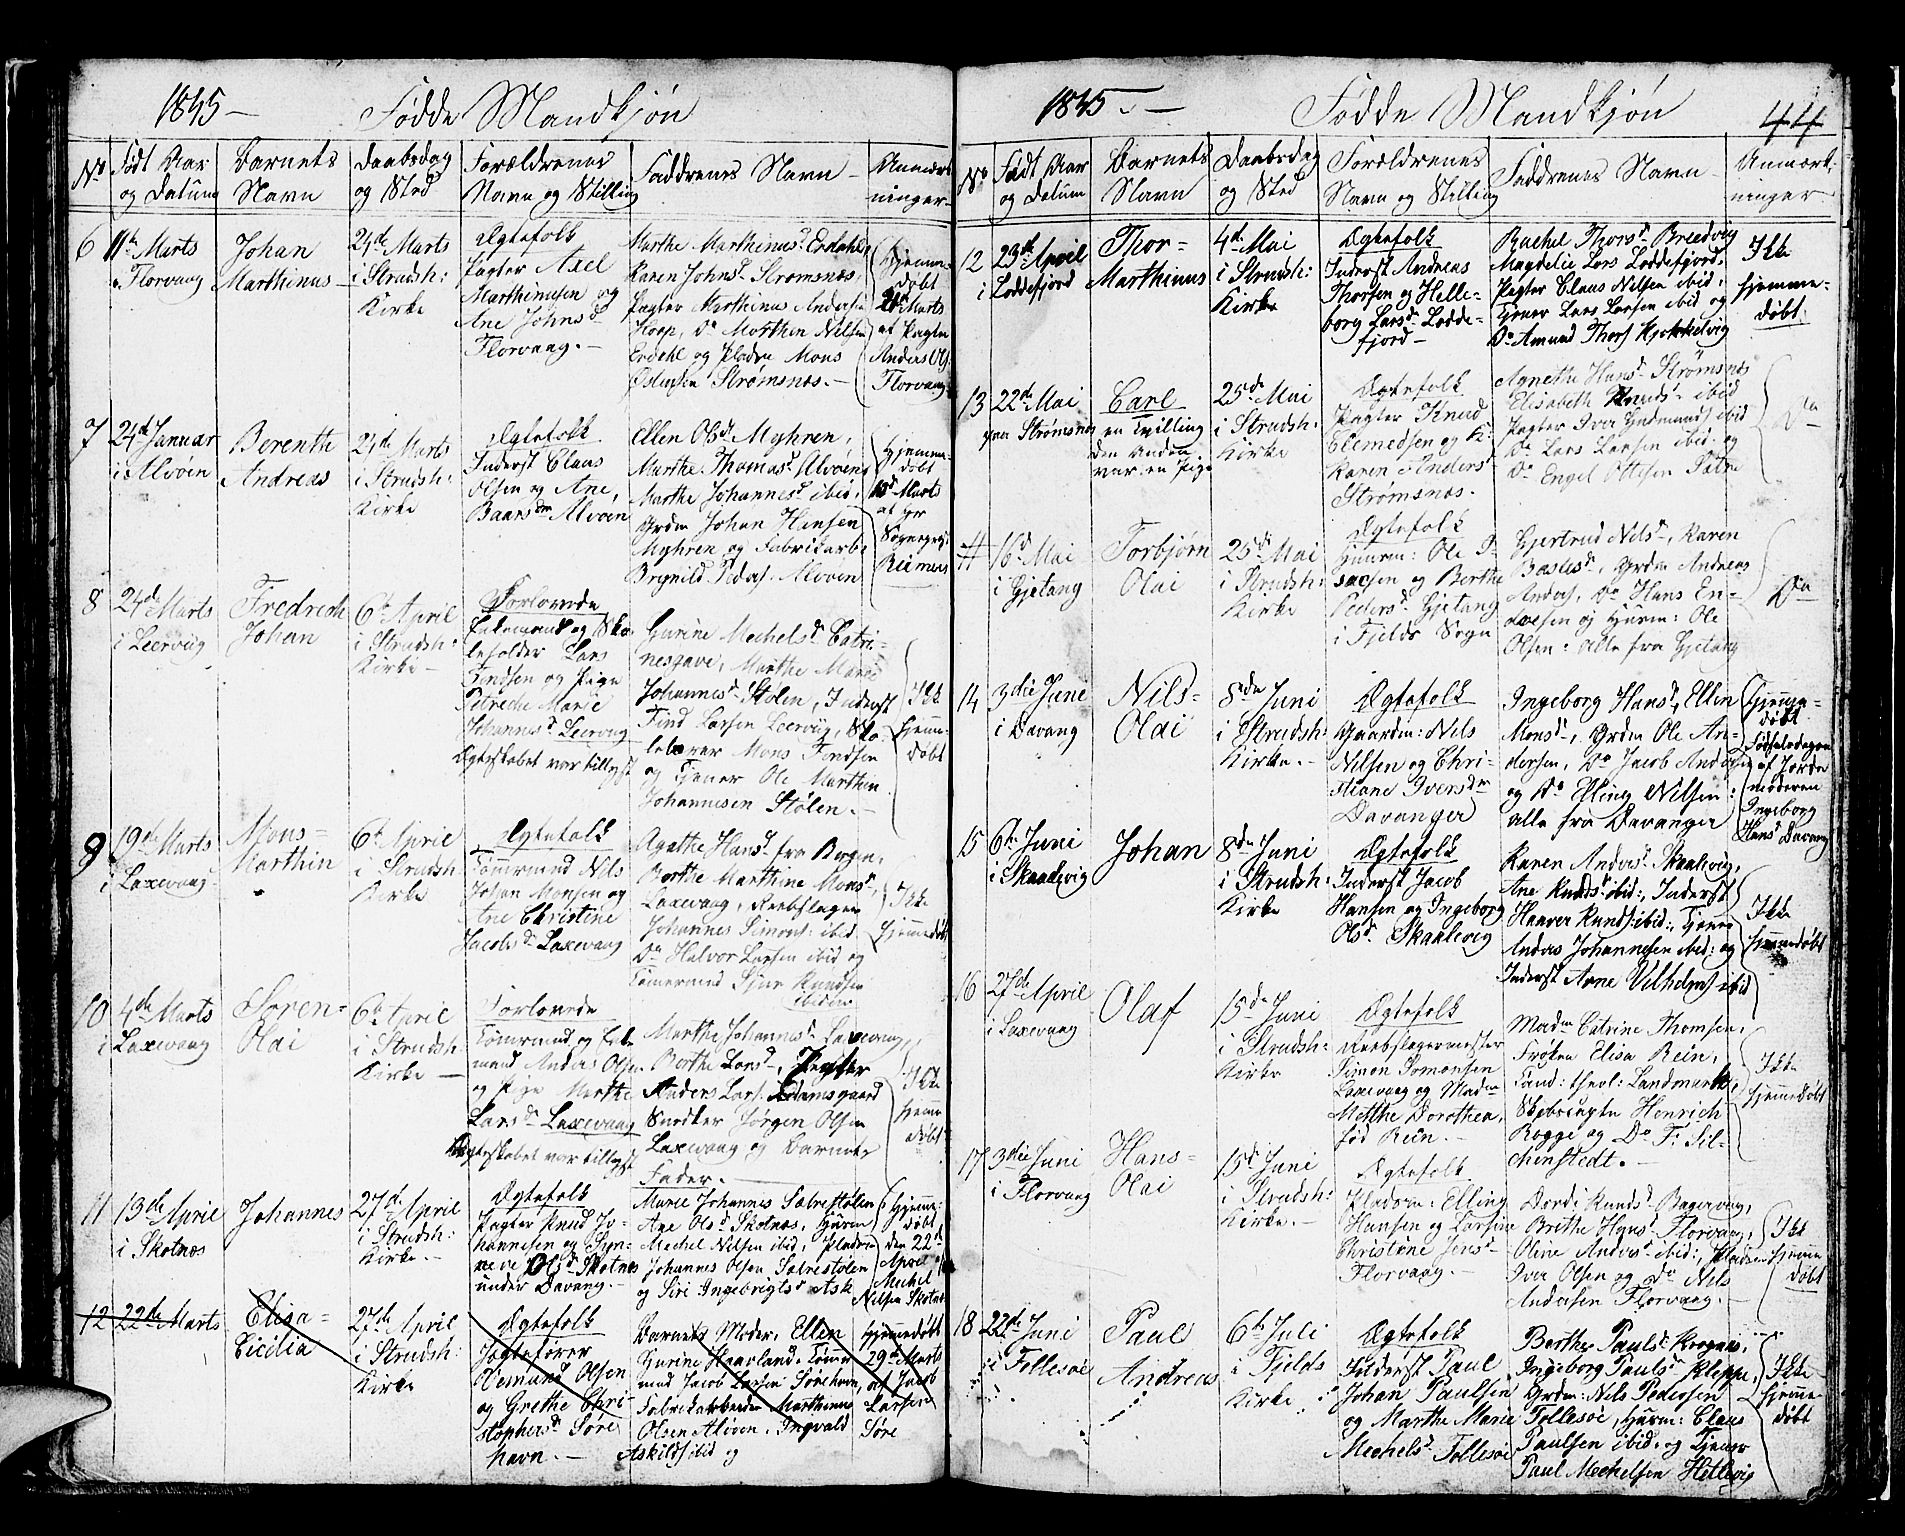 1845 –
Födde Mandkjön
No
Födt Aar
og Datum
Barnets
Navn
Daabsdag
og Sted
Forældrenes
Navn og Stilling
Faddrenes Navn –
Anmærk
ninger –
6
11te Marts
i Florvaag
Johan
Marthinus –
24de Marts
i Strudsh:
Kirke
Ægtefolk
Pagter Axel
Marthinusen og
Ane Johnsd
Florvaag. –
Marthe Marthinusd Erdahl,
Karen Johnsd Strömsnæs,
Pagter Marthinus Andersen
Do Morthen Nilsen
Erdahl og Pladsm Mons
Östensen Strömsnæs. –
Hjemme-
döbt
Marts
af Pagter
Anders Ols
Florvaag
7
24de Januar
i Alvöen
Berenth
Andreas
24de Marts
i Strudsh:
Kirke
Ægtefolk
Inderst Claus
Olsen og Ane
Baarsdr Alvöen
Ellen Olsd Myhren,
Marthe Thomasd Alvöen
Marthe Johannesd ibid,
Grdm Johan Hansen
Myhren og Fabrikarb:
Brynild Peders. Alvöen
Hjemme-
döbt
Marts
af Hr
Sognepr:
Reimers
8
24de Marts
i Leervig
Fredrech
Johan
6te April
i Strudsh:
Kirke –
Forlovede
Enkemand og Sko-
leholder Lars
Findsen og Pige
Petreche Marie
Johannesd Leervig
Ægteskabet var tillyst
Gurine Mechelsd Catri-
nesgave, Marthe Marie
Johannesd Stölen, Inderst
Find Larsen Leervig, Sko-
lelærer Mons Findsen
og Tjener Ole Marthin
Johannesen Stölen. –
Ikke
hjemme-
döbt
9
19de Marts
i Laxevaag
Mons –
Marthin
6te April
i Strudsh
Kirke
Ægtefolk
Tömrmand Nils
Johan Monsen og
Ane Christine
Jacobsdr Laxevaag
Agathe Hansd fra Bergen,
Berthe Marthine Monsd,
Laxevaag, Reebslager
Johannes Simons: ibid
Do Halvor Larsen ibid og
Tömermand Sjur Knudsen
ibidem
Ikke
hjemmedöbt
10
4de Marts
i Laxevaag
Sören –
Olai
6te April
i Strudsh
Kirke –
Forlovede
Tömrmand og Enke
mand Anders Olsen
og Pige Marthe
Larsdr Laxevaag
Ægteskabet var tillyst
Marthe Johannesd Laxevaag,
Berthe Larsd, Pagter
Anders Lars: Adamsgaard
Snedker Jörgen Olsen
Laxevaag og Barnets
Fader. –
Ikke
hjemme
döbt
11
13de April
i Skotnæs
Johannes
27de April
i Strudsh:
Kirke. –
Ægtefolk
Pagter Knud Jo-
hannesen og Syn-
neve Olsd Skotnæs
under Davang. –
Marie Johannesd Sætrestölen
Ane Olsd Skotnæs, Huusm
Mechel Nilsen ibid, Pladsm
Johannes Olsen Sætrestölen
og Siri Ingebrigtsd Ask
Hjemme-
döbt
den 22de
April af
Mechel
Nilsen Skotnæs
12
22de Marts
Elisa –
Cicilia
27de April
i Strudsh:
Kirke
Ægtefolk
Jægtefører
Vemund Olsen
og Grethe Chri-
stophersd Söre
havn. –
Barnets Moder, Ellen
Gurine Haarland, Tömr
mand Jacob Larsen Sörehavn,
Fabrikarbeider Marthinus
Olsen Alvöen, Ingvald
Askilds ibid og
Hjemmedöbt
29de Marts
af Jacob
Larsen
Söre
1845. –
Födde Mandkjön
44
No
Födt Aar
og Datum
Barnets
Navn
Daabsdag
og Sted
Forældrenes
Navn og Stilling
Faddrenes Navn –
Anmærk-
ninger
12
23de April
i Loddefjord
Thor –
Marthinus
4de Mai
i Strudsh:
Kirke
Ægtefolk
Inderst Andreas
Thorsen og Helle-
borg Larsd Lodde-
fjord –
Rachel Thorsd Breedvig
Magdeli Lars Loddefjord,
Pagter Claus Nilsen ibid,
Tjener Lars Larsen ibid og
Do Amund Thors
Ikke
hjemme-
döbt.
13
22de Mai
paa Strömsnæs
Carl
en Tvilling
den anden
var en Pige
25de Mai
i Strudsh:
Kirke
Ægtefolk
Pagter Knud
Clemedsen og K.
Karen Andersd
Strömsnæs.
Agnethe Hansd Strömsnæs
Elisabeth Knudsd ibid
Pagter Iver Gudmunds ibid
Do Lars Larsen ibid. og
Do Engel Ottesen Sætre
Do
16de Mai
i Gjetang
Torbjörn
Olai
25de Mai
i Strudsh:
Kirke
Ægtefolk
Huusm: Ole I-
sacsen og Berthe
Pedersd Gjetang
i Fjelds Sogn
Gjertrud Nilsd, Karen
Grdm Andreas
Anders, Do Hans En-
dresen og Huusm: Ole
Olsen: alle fra Gjetang
Do
14
3die Juni
i Davang
Nils –
Olai
8de Juni
i Strudsh:
Kirke. –
Ægtefolk
Gaardm: Nils
Nilsen og Chri-
stiane Iversdr
Davanger
Ingeborg Hansd, Ellen
Monsd, Grdm Ole An-
dersen, Do Jacob Anders
og Do Elling Nilsen:
alle fra Davanger
Hjemme-
döbt
Födselsdagen
af Jorde
moderen
Ingeborg
Hansd Davang
15
6te Juni
i Skaalevig
Johan
8de Juni
i Strudsh:
Kirke
Ægtefolk
Inderst Jacob
Hansen og Ingeborg
Olsd. Skaalevig
Karen Andersd Skaalevig,
Ane Knudsd ibid:, Inderst
Haaver Knuds: ibid:, Tjener
Anders Johannesen ibid: og
Inderst Arne Vilhelms ibid
Ikke
hjemmedöbt
16
27de April
i Laxevaag
Olaf
15de Juni
i Strudsh:
Kirke
Ægtefolk
Reebslagermester
Simon Somonsen
Laxevaag og Madm
Metthe Dorothea,
föd Rein. –
Madm Catrine Thomsen,
Fröken Elisa Rein,
Cand: theol: Landmark,
Skibscaptn Henrich
Rogge og Do F: Sil-
chenstedt. –
Ikke
hjemmedöbt
17
3die Juni
i Florvaag
Hans –
Olai
15de Juni
i Strudsh:
Kirke. –
Ægtefolk
Pladsm: Elling
Hansen og Larsine
Christine Jensd
Florvaag. –
Dordi Knudsd
Brithe Hansd Florvaag,
Oline Andersd ibid:, Pladsm
Iver Olsen og Do Nils
Andersen Florvaag. –
Ikke
hjemme
döbt
18
22de Juni
i Follesöe
Paul
Andreas
6te Juli
i Fjelds
Kirke
Ægtefolk
Inderst Paul
Johan Paulsen
og Marthe Marie
Mechelsd Follesöe
Berthe Paulsd Krogaas,
Ingeborg Paulsd Kleppe,
Grdm: Nils Pedersen
Follesöe, Huusm: Claus
Paulsen ibid. og Tjener
Paul Mechelsen Hetlevig
Ikke
hjemme-
döbt